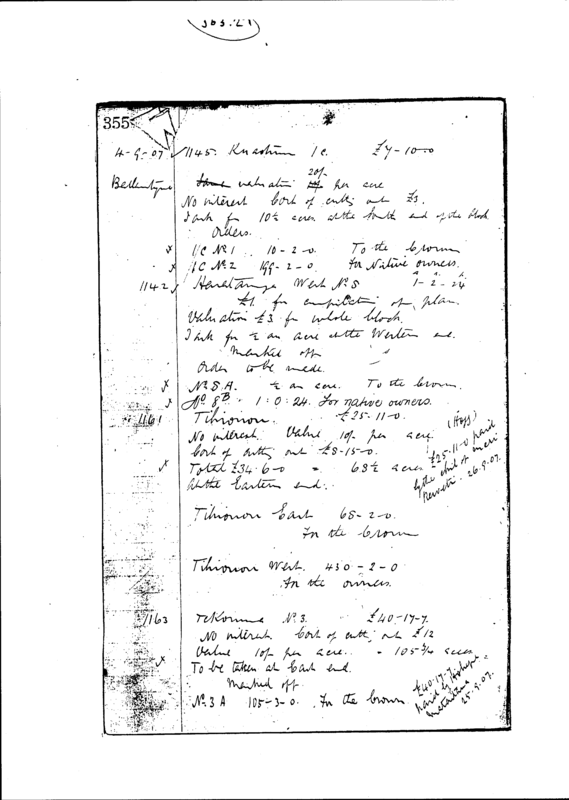 355
4-9-07 1145. 1C. £7-10-0
Ballantyne valuation 20/- per acre
No interest Cost of cutting out £3.
I ask for 10½ acres at the South end of the block
Orders.
x 1C No 1 10-2-0. To the Crown
x 1C No 2 199-2-0. For Native owners.
1142 West No 8 1-2-24
£1 for compilation of plan.
Valuation £3 for whole block.
I ask for ½ an acre at the Western end.
Marked off
Order to be made.
x No 8A. ½ an acre. To the Crown.
x No 8B. 1:0:24. For native owners.
1161 Tihionon. £25-11-0.
No interest. Value 10/- per acre.
Cost of cutting out £8-15-0.
x Total £34-6-0 = 68½ acres
At the Eastern end.
(Hogg)
£25-11-0 paid
26.9.07.
Tihionon East 68-2-0.
For the Crown
Tihionon West. 430-2-0
For the owners.
1163 No 3. £40-17-7.
No interest. Cost of cutting out £12
Value 10/- per acre. = 105¾ acres
x To be taken at East end.
Marked off
No. 3A 105-3-0. For the Crown
£40-17-7
paid by
25.9.07.